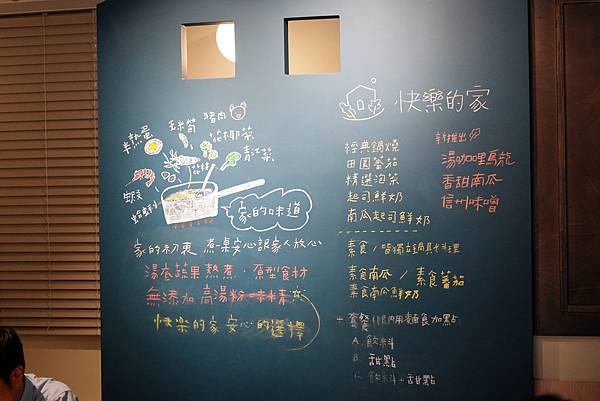 半熟蛋
玉米筍
豬肉
花椰菜
青江菜
蝦子
蛤蜊
家的味道
家的初衷 煮一桌安心讓家人放心
湯底蔬果熬煮、原型食材
無添加高湯粉、味素
快樂的家安心的選擇
快樂的家
經典鍋燒
田園蕃茄
精選泡菜
起司鮮奶
南瓜起司鮮奶
新推出
湯咖哩烏龍
香甜南瓜
信州味噌
素食/皆獨立鍋具料理
素食南瓜 / 素食蕃茄
素食南瓜鮮奶
+ 套餐 僅內用麵食加點
A. 飲料
B. 甜點
C. 飲料+甜點